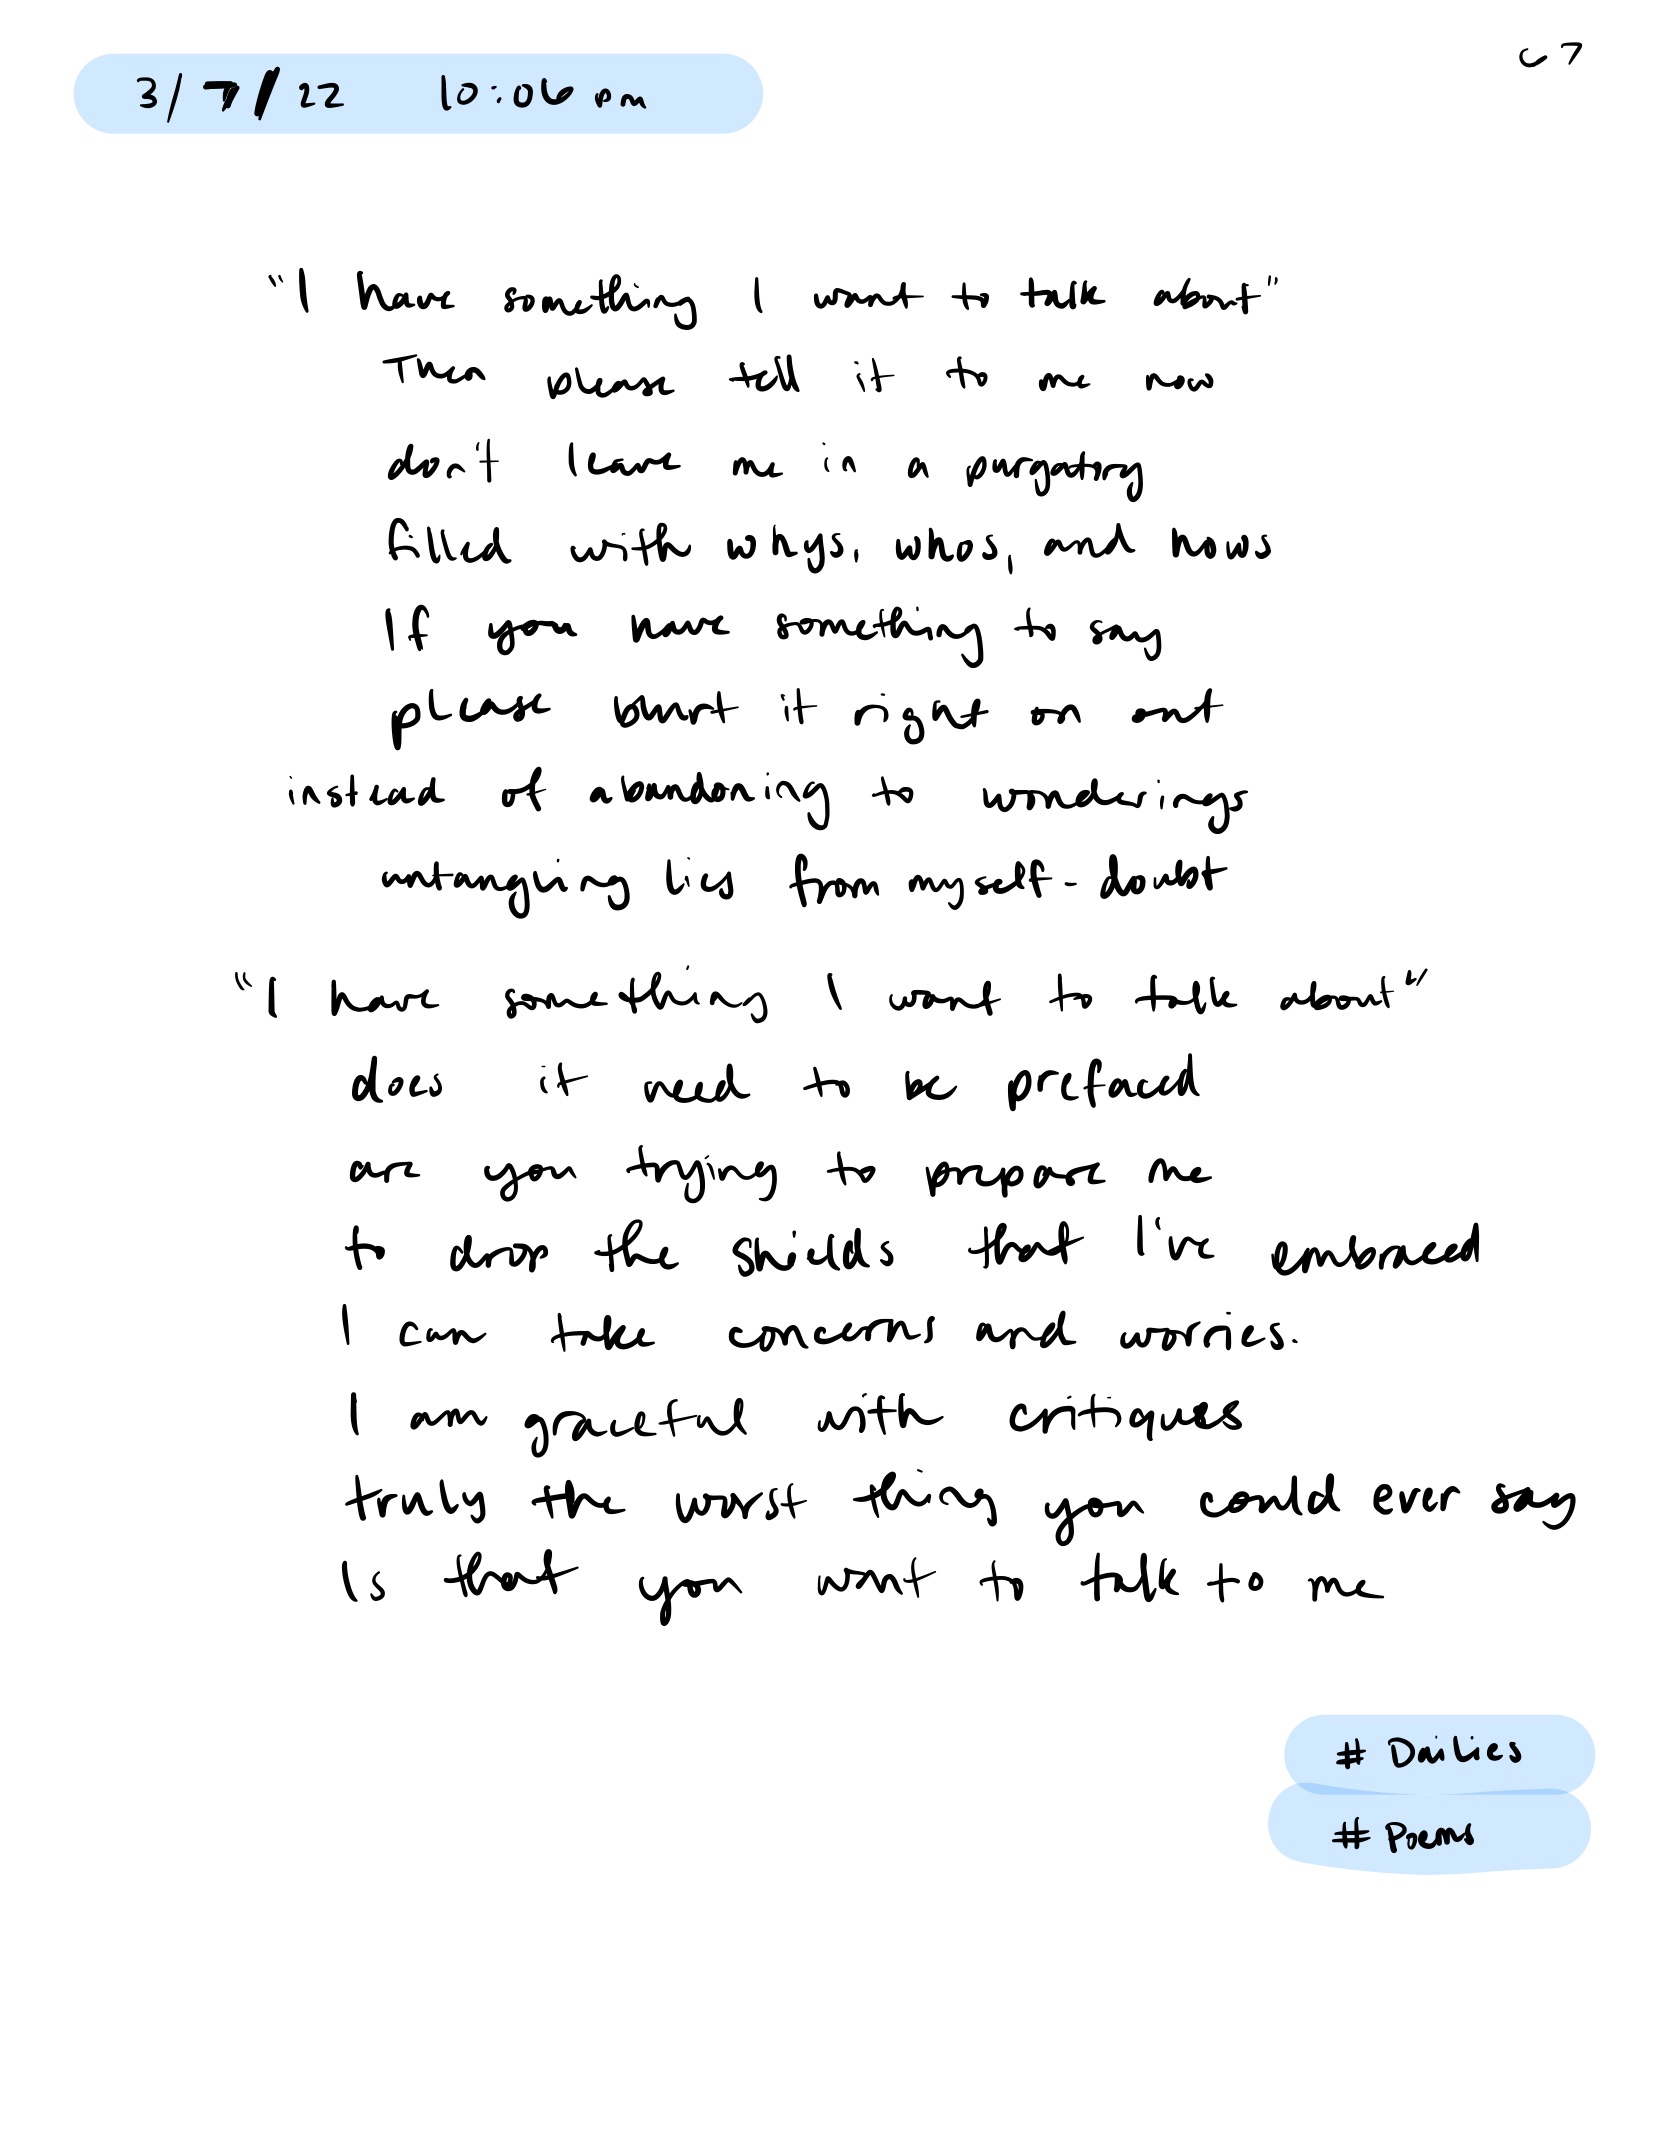 67
3/7/22 10:06 pm
"I have something I want to talk about"
Then please tell it to me now
don't leave me in a purgatory
filled with whys, whos, and hows
If you have something to say
please blurt it right on out
instead of abandoning to wonderings
untangling lies from myself-doubt
"I have something I want to talk about"
does it need to be prefaced
are you trying to prepare me
to drop the shields that I've embraced
I can take concerns and worries.
I am graceful with critiques
truly the worst thing you could ever say
Is that you want to talk to me
# Dailies
# Poems